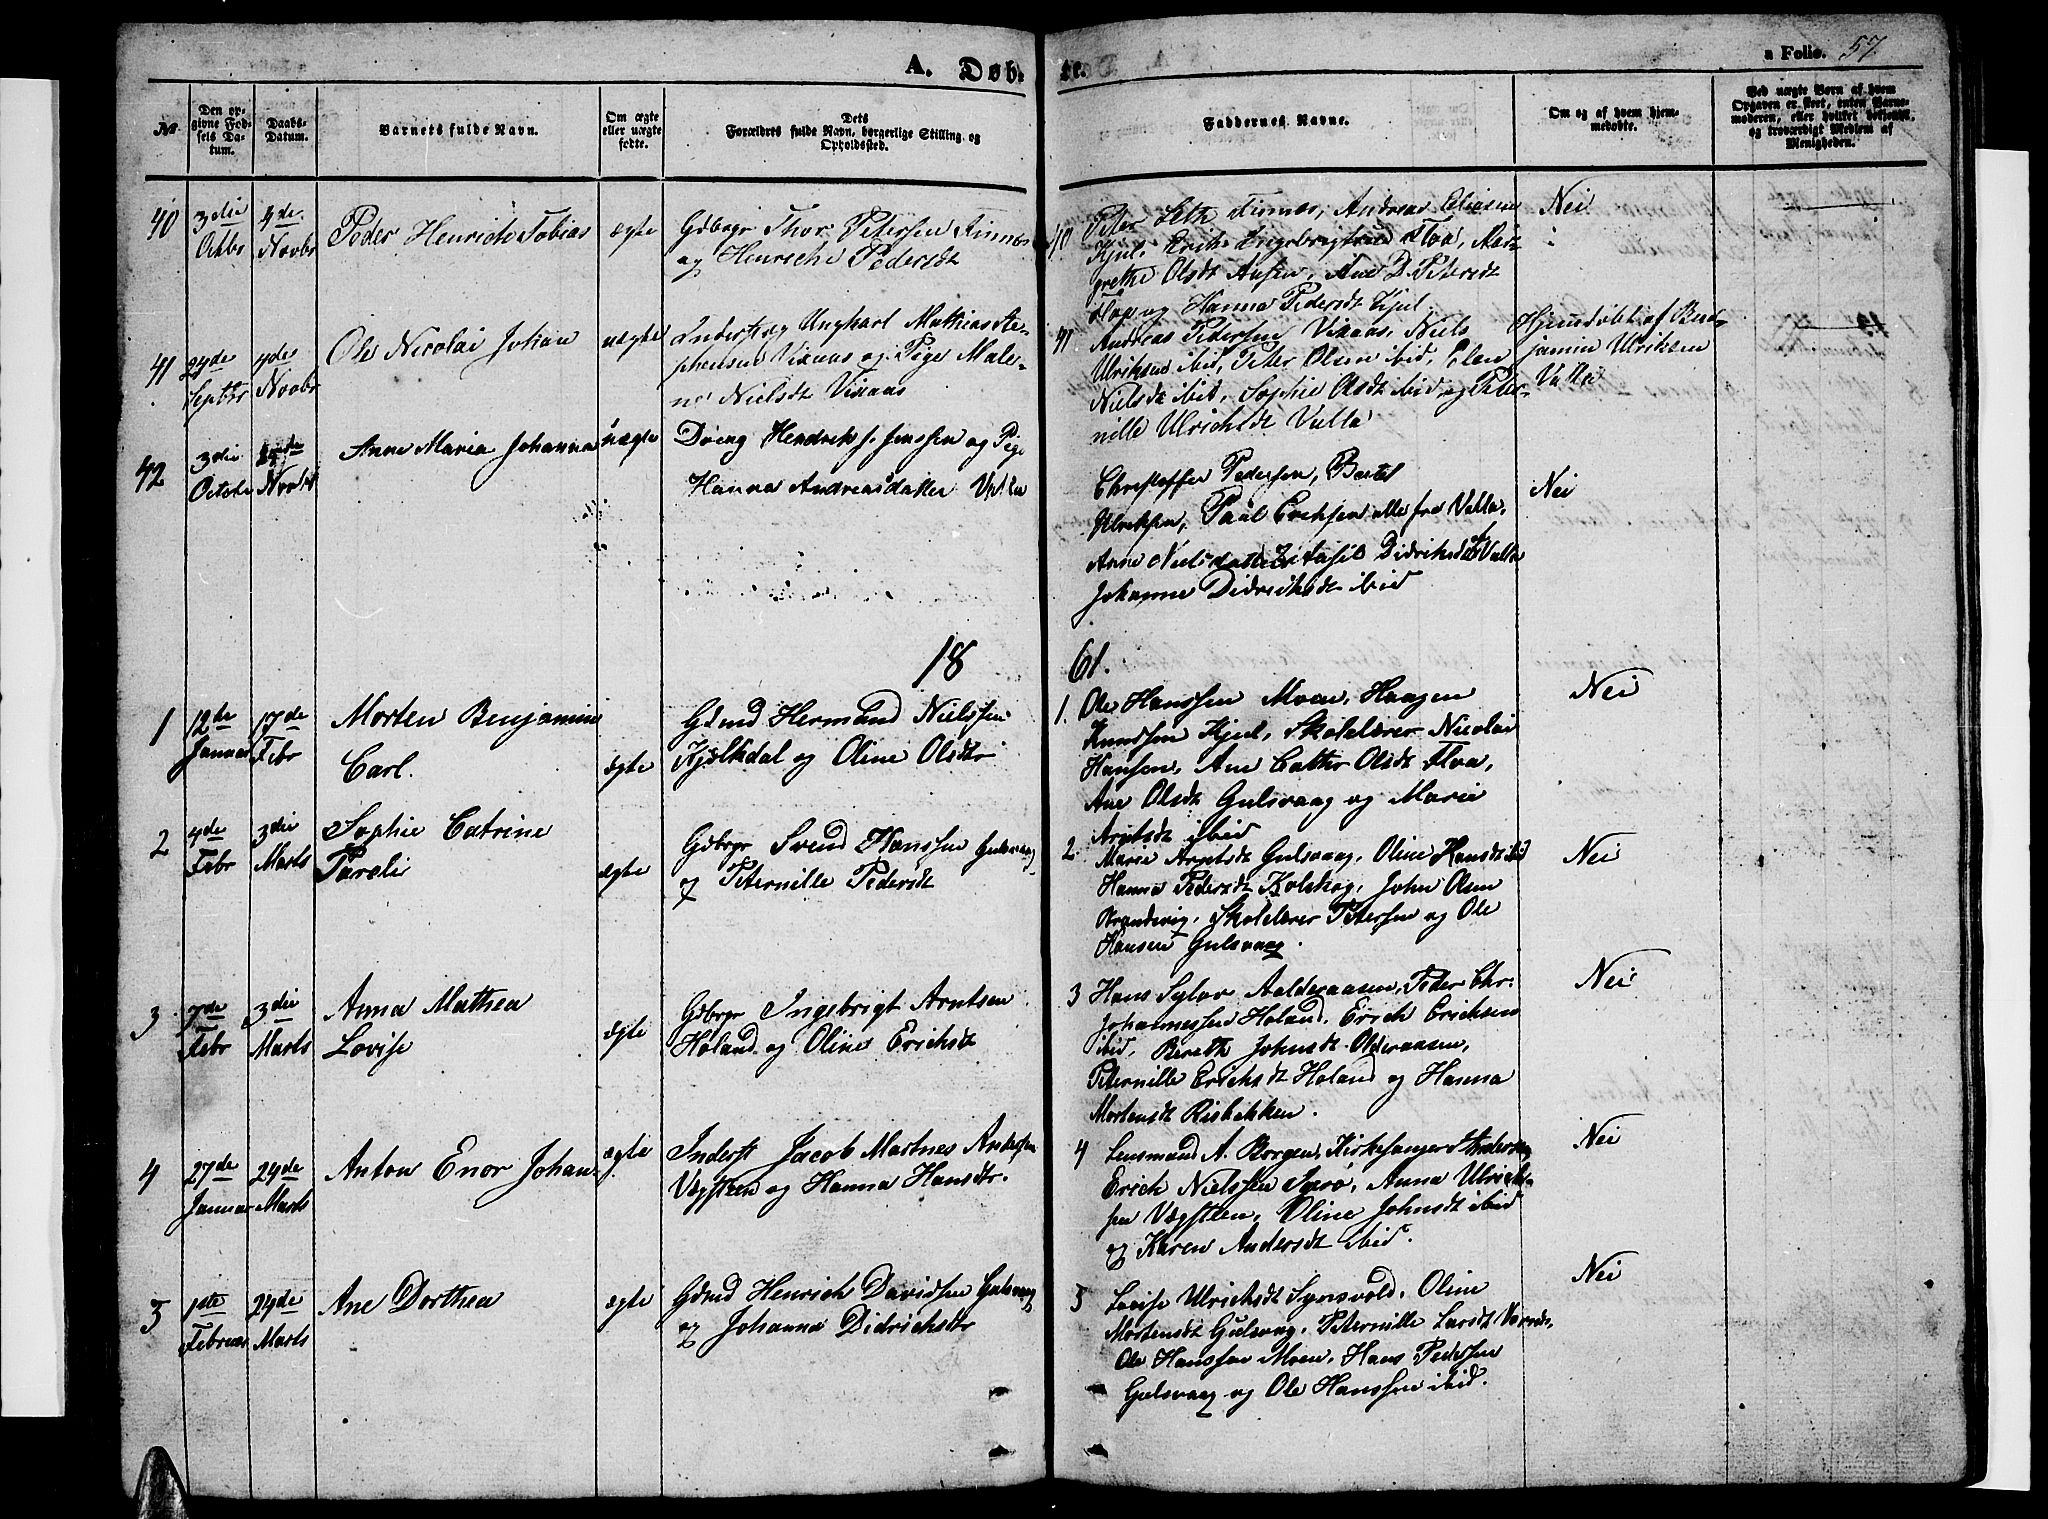 A. Døb- te. a Folio. 57
No
Den op-
givne Fød-
sels Da-
tum.
Daabs-
Datum.
Barnets fulde Navn.
Om ægte
eller uægte
fødte.
Dets
Forældres fulde Navn, borgerlige Stilling og
Opholdssted.
Faddernes Navne.
Om og af hvem hjem-
medøbte.
Ved uægte Børn af hvem
Opgaven er skeet, enten Barne-
moderen, eller hvilket bekjendt,
og troværdigt Medlem af
Menigheden.
40
3die
Octbr
4de
Novbr
Peder Henrich Tobias
ægte
Gdbrgr Thor Petersen Finnes
og Henriche Pedersdt
40
Peter Finnes, Andreas Eliasen
Kjul, Erich Ingebrigtsen Floa, Mar-
grethe Olsdt Ansen, Ane D. Petersdt
Floa og Hanna Pedersdt Kjul
Nei
41
24de
Septbr
4de
Novbr
Ole Nicolai Johan
uægte
Inderst og Ungkarl Mathias Ste-
phensen Vixaas og Pige Male-
na Nielsdt Vixaas
41
Andreas Petersen Vixaas, Niels
Ulriksen ibid, Peter Olsen ibid, Elen
Nielsdt ibid, Sophie Olsdt ibid og Peter-
nille Ulrichsdt Valla
Hjemdøbt af Ben-
jamin Ulriksen
Valla
42
3die
Octobr
Novbr
Anne Maria Johanna
uægte
Dreng Hendrik J. Jenssen og Pige
Hanna Andreasdatter
Christoffer Pedersen, Bertel
Ulriksen, Paal Eriksen alle fra Valla,
Anne Nielsdatter Didriksdt Valla
Johanna Didrichsdt ibid
Nei
18 61.
1
12de
Januar
17de
Febr
Morten Benjamin
Carl.
ægte
Gdmd Hermand Nielssen
Kjelkdal og Oline Olsdtr
1.
Ole Hanssen Moen, Haagen
Knudssen Kjul, Skolelærer Nicolai
Hansen, Ane Cathr Olsdt Floa,
Ane Olsdt Gulsvaag og Marie
Arntsdt ibid
Nei
2
4de
Febr
3die
Marts
Sophie Catrine
Pareli
ægte
Gdbrgr Svend Hanssen Gulsvaag
og Peternille Pedersdt
2
Marie Arntsdt Gulsvaag, Oline Hansdt ibid
Hanna Pedersdt Kolskog, John Olsen
Strandvig, Skolelærer Petersen og Ole
Hansen Gulsvaag.
Nei
3
7de
Febr
3die
Marts
Anna Mathea
Lovise
ægte
Gdbrgr Ingebrigt Arntsen
Holand og Oline Erichsdt
3
Hans Sylor Aalderaasen, Peder Chr.
Johannessen Holand, Erich Erichsen
ibid, Bereth Johnsdt Olderaasen,
Peternille Erichsdt Holand og Hanna
Mortensdt Risbakken.
Nei
4
27de
Januar
24de
Marts
Anton Enor Johan
ægte
Inderst Jacob Martnes Andersen
Vægsteen og Hanna Hansdtr.
4
Lensmand A. Borgen, Kirkesanger Andersen,
Erich Nielssen Jarø, Anna Ulrich-
sen Vægsteen, Oline Johnsdt ibid
og Karen Andersdt ibid.
Nei
5
1ste
Februar
24de
Marts
Ane Dorthea
ægte
Gdmd Henrich Davidsen Gulsvaag
og Johanna Didrichsdtr
5
Lovise Ulrichsdt Synsvold, Oline
Mortensdt Gulsvaag, Peternille Larsdt
Ole Hanssen Moen, Hans Pedersen
Gulsvaag og Ole Hanssen ibid.
Nei